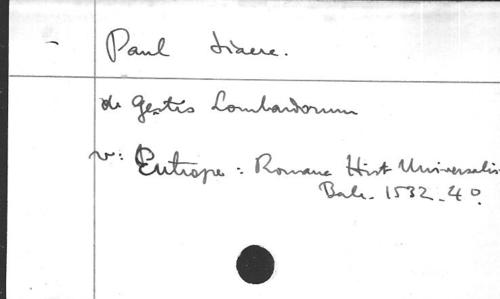 - Paul diacre.
de gestis Lombardorum
v: Eutrope : Romane Hist Universalis
Bale. 1532_4°.